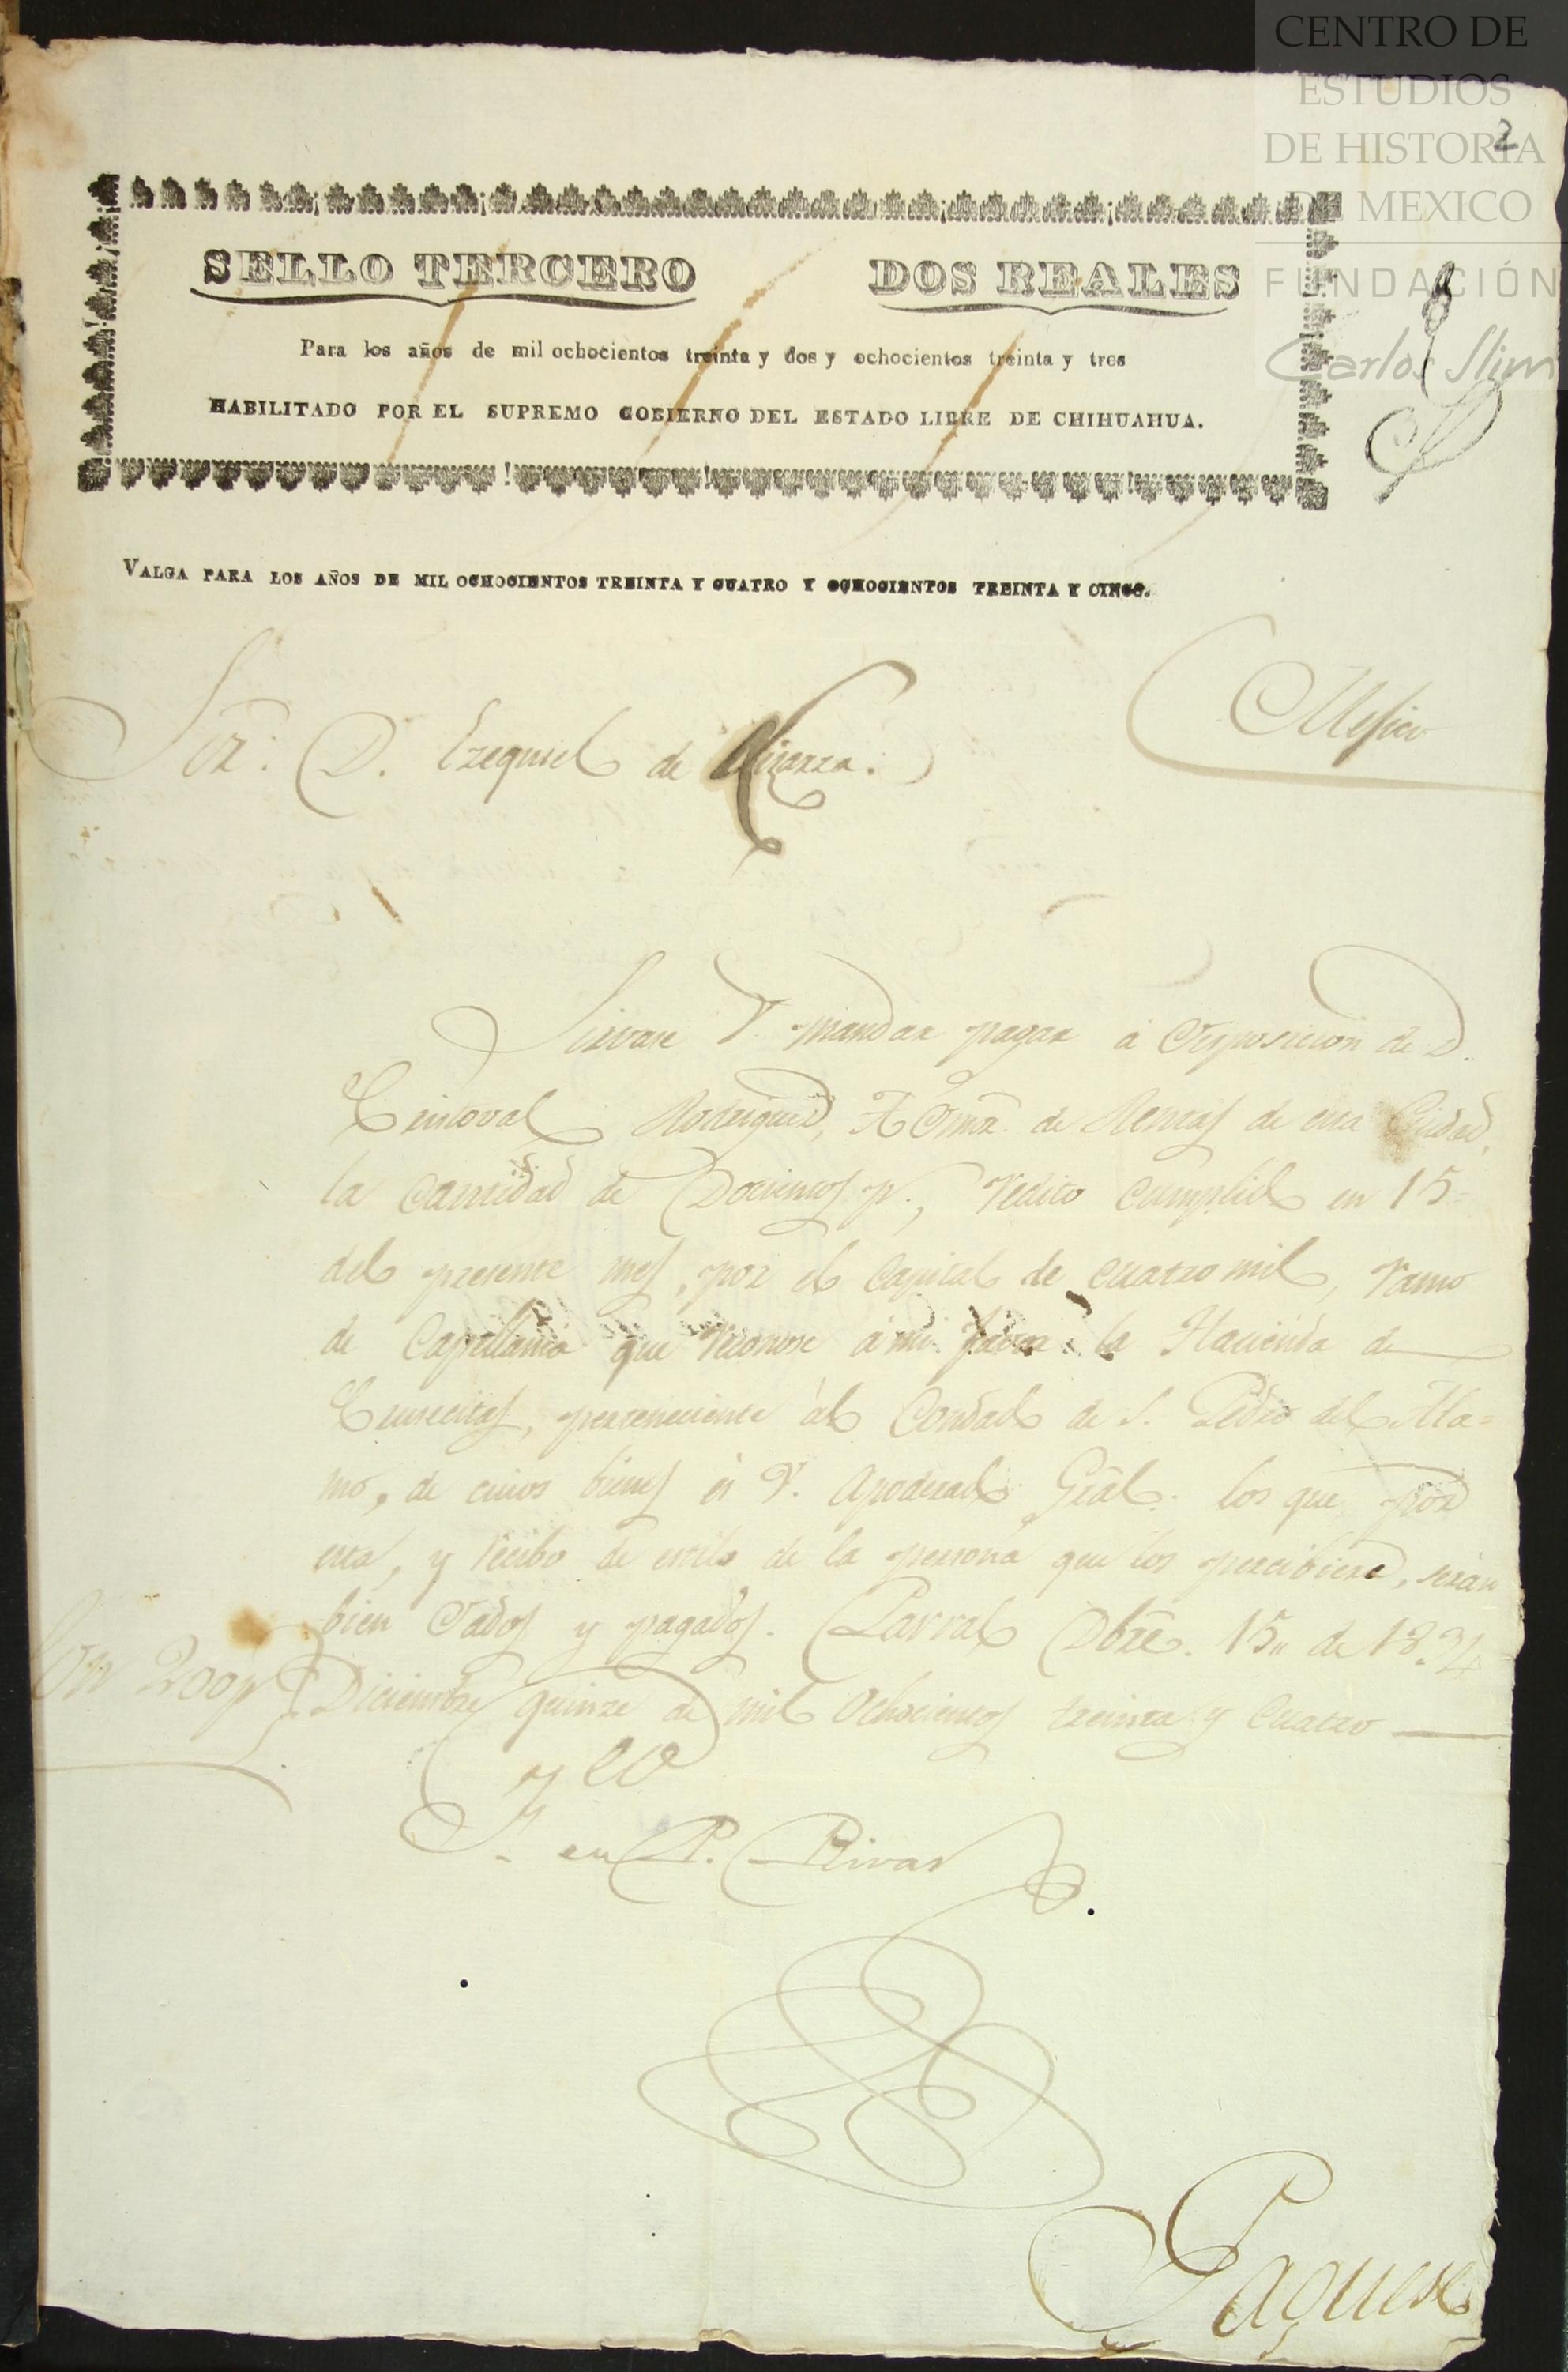 CENTRO DE
ESTUDIOS
DE HISTORIA
DE MEXICO
FUNDACIÓN
Carlos Slim
2
SELLO TERCERO DOS REALES
Para los años de mil ochocientos treinta y dos y ochocientos treinta y tres
HABILITADO POR EL SUPREMO GOBIERNO DEL ESTADO LIBRE DE CHIHUAHUA.
VALGA PARA LOS AÑOS DE MIL OCHOCIENTOS TREINTA Y CUATRO Y OCHOCIENTOS TREINTA Y CINCO.
Mejico
Sor. D. Ezequiel de Lizarza.
Sirvase V. mandar pagar á disposicion de D.
Cristoval Rodriguez, Admr. de Rentas de esta Ciudad,
la cantidad de Docientos p., redito cumplido en 15
del presente mes, por el Capital de cuatro mil, ramo
de Capellania que reconose á mi favor la Hacienda de
Crusecitas, perteneciente al Condado de S. Pedro del Ala=
mo, de cuios bienes és V. Apoderado Gral. los que por
esta, y recibo de estilo de la persona que los percibiere, serán
bien dados y pagados. Parral Dbre. 15 de 1834
Son 200 p. Diciembre quinze de mil ochocientos treinta y cuatro
J. en P. Rivas
Paguese